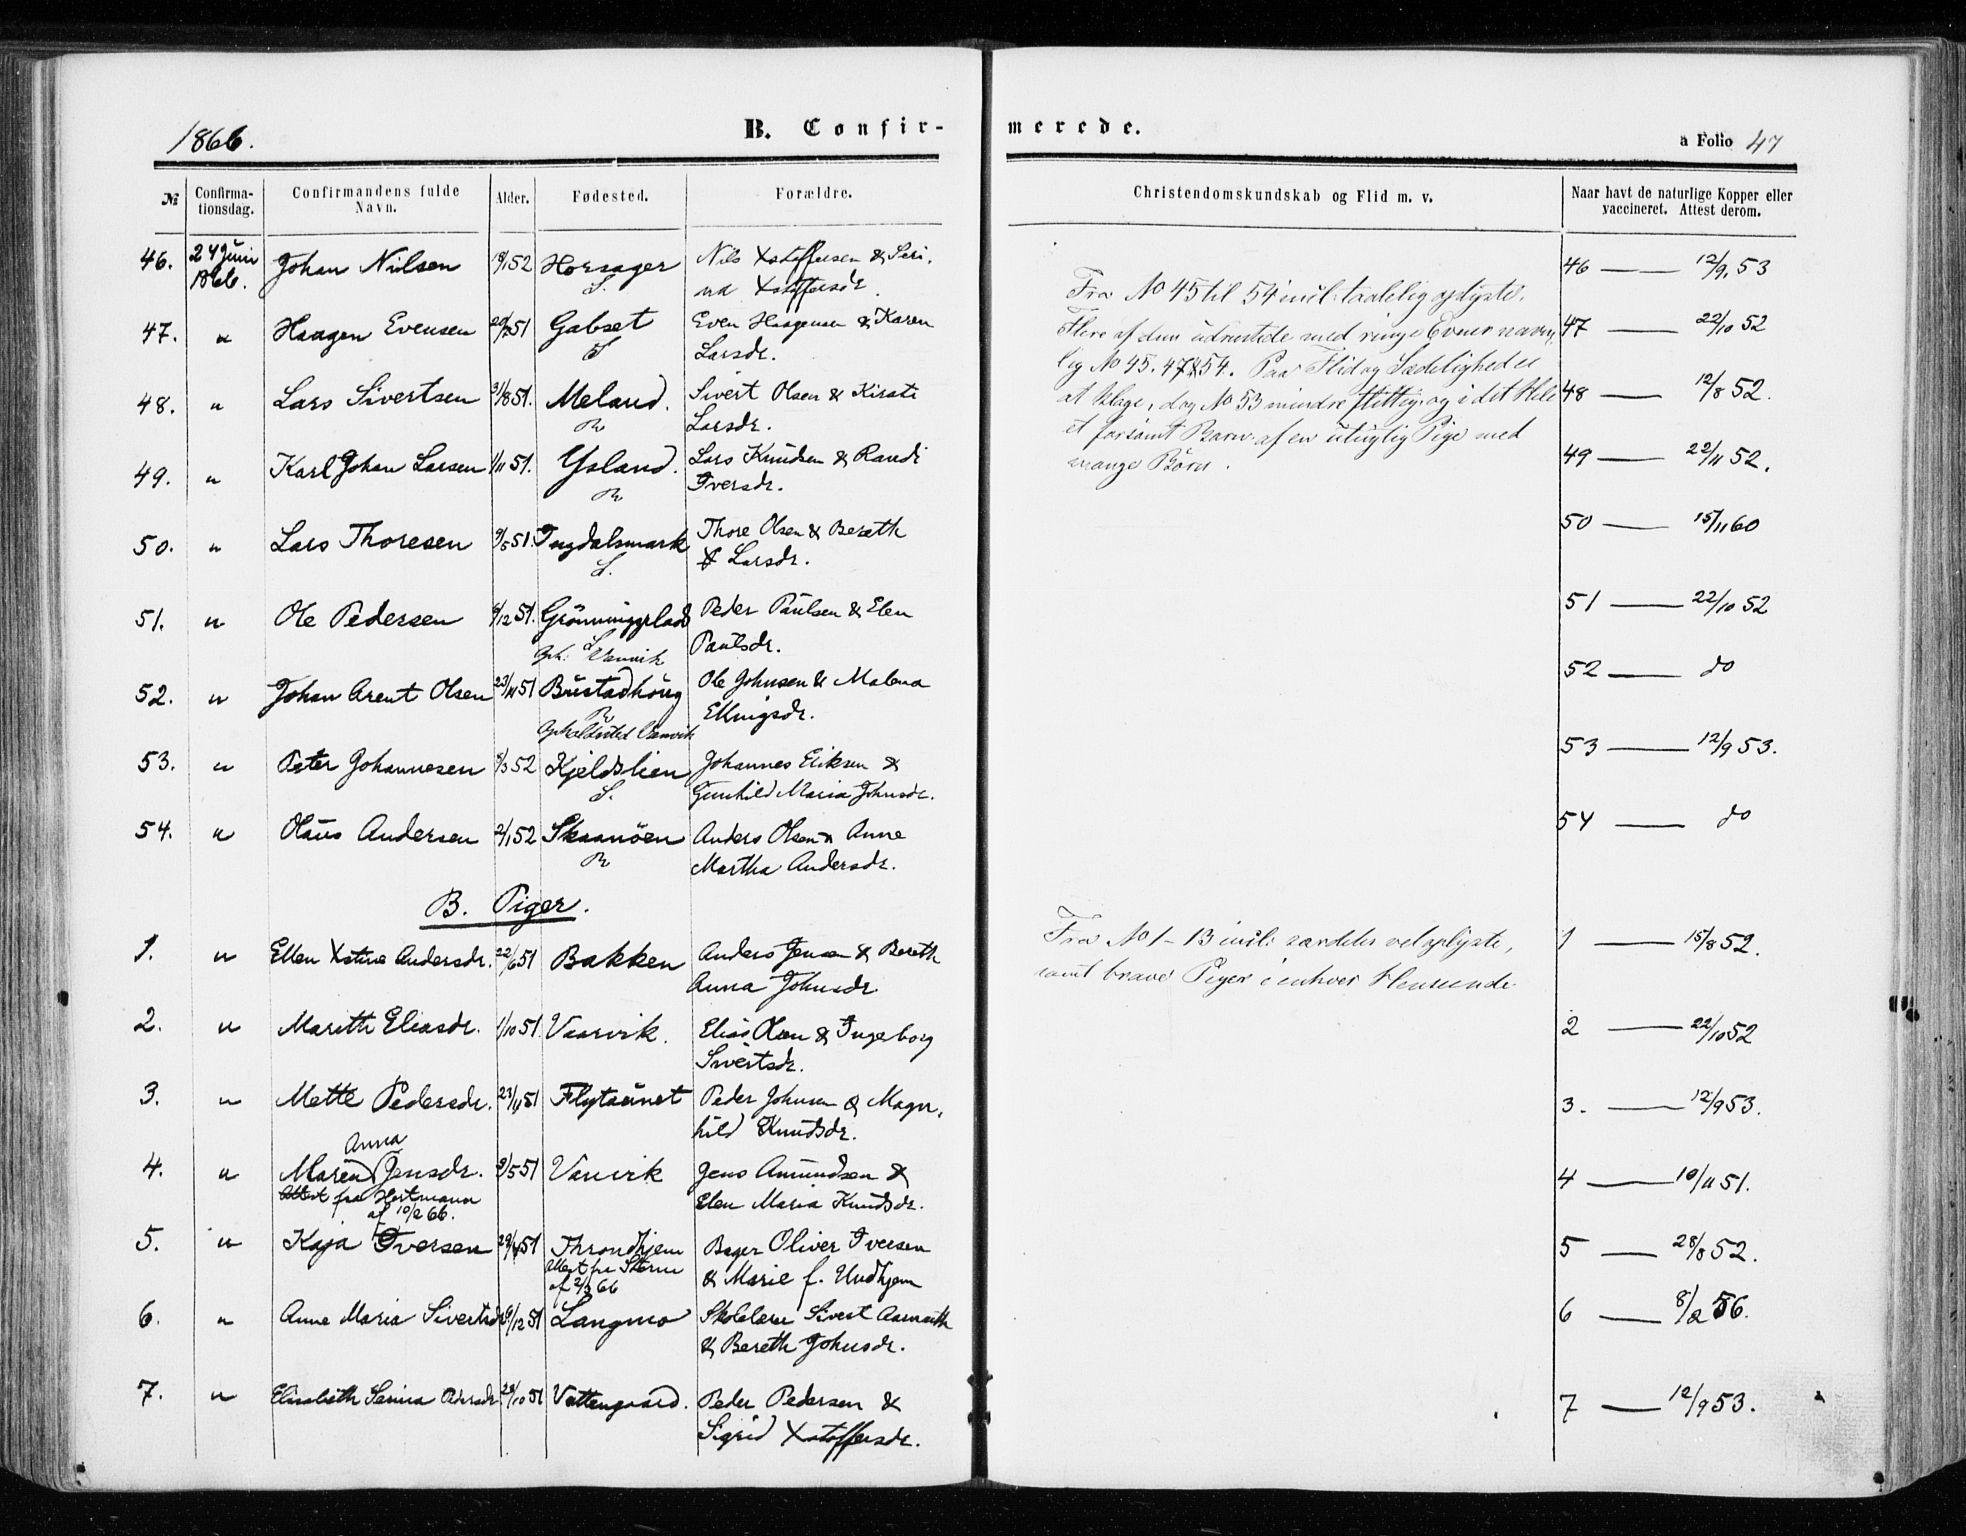 1866.
B. Confir-
merede.
a Folio 47
№
Confirma-
tionsdag.
Confirmandens fulde
Navn.
Alder.
Fødested.
Forældre.
Christendomskundskab og Flid m. v.
Naar havt de naturlige Kopper eller
vaccineret. Attest derom.
46. 24 Juni Johan Nilsen 52 Horsager Nils Xstoffersen & Seri,
1866. S. na Xstoffersdr.
47. " Haagen Evensen 51 Gabset Even Haagensen & Karen
S Larsdr.
48. " Lars Sivertsen 31/8 51. Meland. Sivert Olsen & Kirsti
R Larsdr.
49. " Karl Johan Larsen 1/11 51. Ysland. Lars Knudsen & Randi
R Iversdr.
50. " Lars Thoresen 9/5 51. Ingdalsmark Thore Olsen & Bereth
S. Larsdr.
51. " Ole Pedersen 6/12 51. Grönningsplads Peder Paulsen & Elen
S Paulsdr.
Oph: Vanvik
52. " Johan Arent Olsen 23/11 51 Bustadhöug Ole Johnsen & Malena
R Ellingsdr.
Vanvik
53. " Peter Johannesen 8/3 52 Kjeldslien Johannes Eriksen &
S. Gunhild Maria Johnsdr.
54. " Olaus Andersen 2/1 52 Skaanöen Anders Olsen & Anne
R Martha Andersdr.
B. Piger.
1. " Ellen Xstine Andersdr. 22/6 51 Bakken Anders Jensen & Bereth
Anna Johnsdr.
2. " Mareth Eliasdr. 1/10 51. Vaarvik. Elias Olsen & Ingeborg
Sivertsdr.
3. " Mette Pedersdr. 23/11 51 Flytaunet Peder Johnsen & Magn,
hild Knudsdr.
Anna
4. " Maren Jensdr. 2/5 51 Vanvik Jens Amundsen &
Attest fra Hartmann Elen Maria Knudsdr.
af 10/2 66.
5. " Kaja Iversen 29/4 51 Throndhjem Bager Oliver Iversen
Attest fra & Marie f. Undhjem
af 2/3 66
6. " Anne Maria Sivertsdr 9/12 51 Langmo Skolelærer Sivert
& Bereth Johnsdr.
7. " Elisabeth Serina Pedersdr. 28/10 51 Vattengaard. Peder Pedersen &
Sigrid Xstoffersdr.
Fra No 45 til 54 incl: taalelig oplyste.
Flere af dem udrustede med ringe Evner navn,
lig No 45. 47 & 54. Paa Flid og Sædelighed ei
at klage, dog No 53 mindre flittig og i det Hele
et forsömt Barn af en utugtig Pige med
mange Börn.
Fra No 1 - 13 incl: særdeles vel oplyste,
samt brave Piger i enhver Henseende
46 — 12/9 53
47 — 22/10 52
48 — 12/8 52.
49 — 22/11 52.
50 — 15/11 60
51 — 22/10 52
52 — do
53 — 12/9 53.
54 — do
1 — 15/8 52.
2 — 22/10 52
3. — 12/9 53.
4 — 10/11 51.
5 — 28/8 52.
6 — 8/2 56.
7 — 12/9 53.